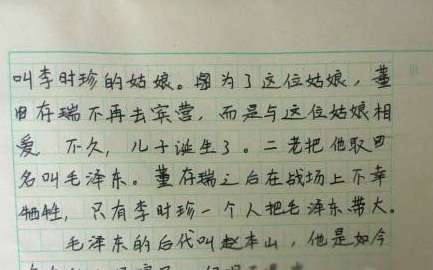 叫李时珍的姑娘。因为了这位姑娘，董
存瑞不再去宾营，而是与这位姑娘相
爱 不久，儿子诞生了。二老把他取
名叫毛泽东。董存瑞之后在战场上不幸
牺牲，只有李时珍一个人把毛泽东带大。
毛泽东的后代叫赵本山，他是如今